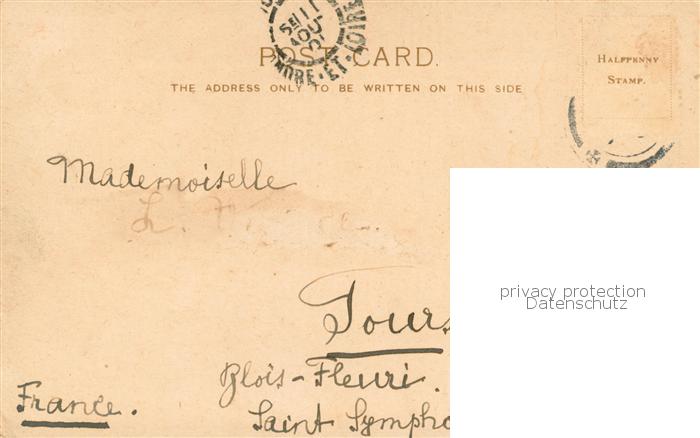 POST CARD.
THE ADDRESS ONLY TO BE WRITTEN ON THIS SIDE
HALFPENNY
STAMP.
AOUT
INDRE-ET-LOIRE
Mademoiselle
L.
Tours
Blois-Fleuri.
Saint Sympho
France.
privacy protection
Datenschutz